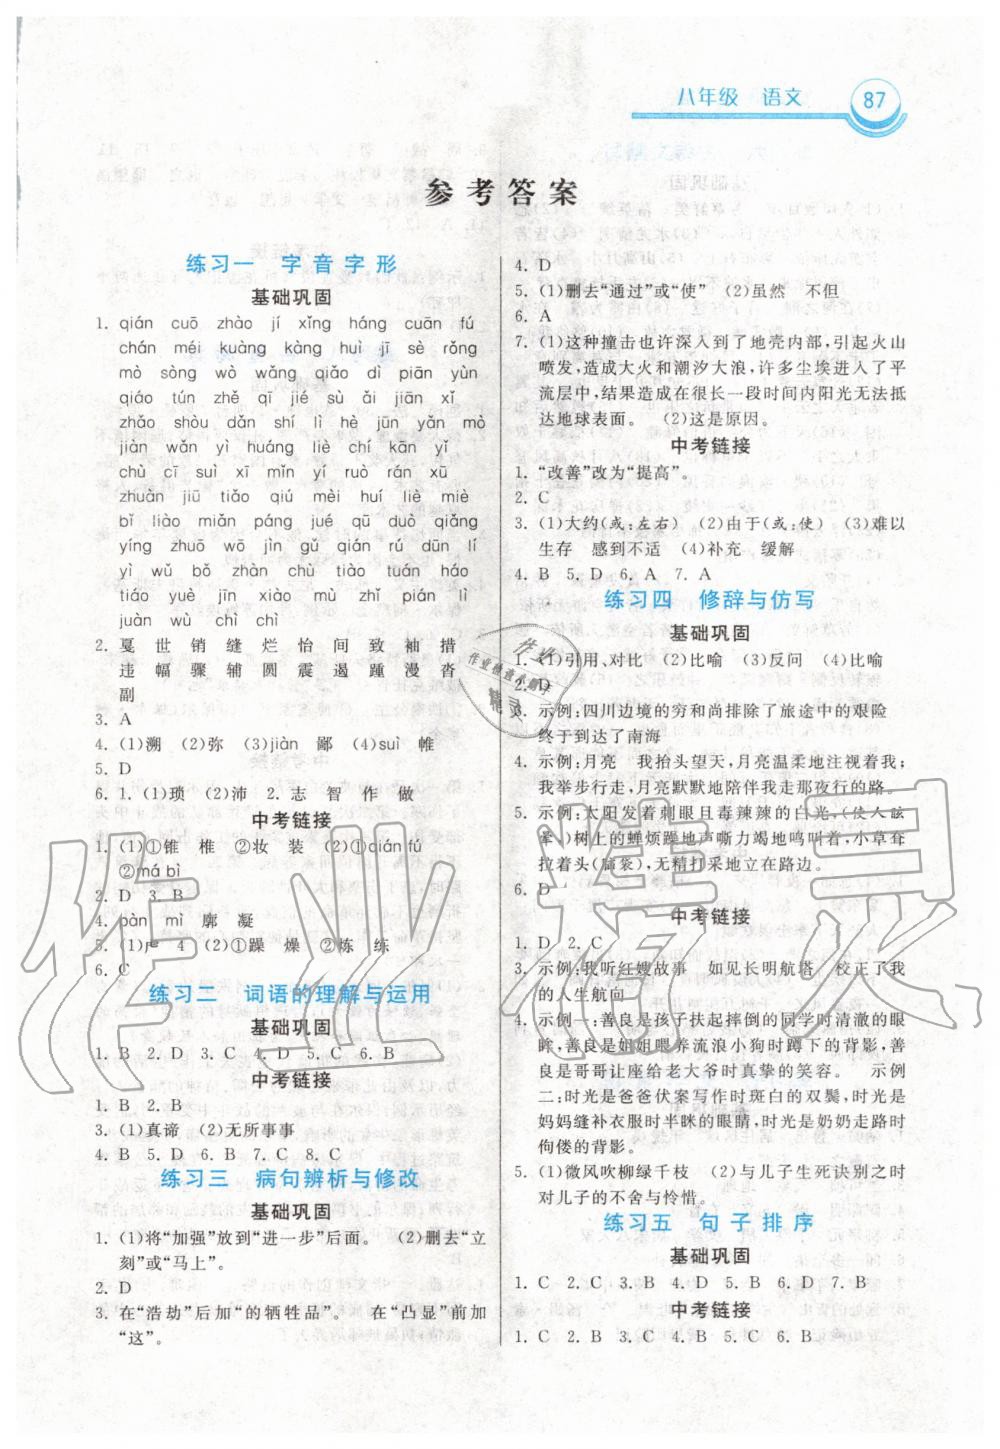 八年级 语文 87
参考答案
练习一 字音字形
基础巩固
1. qián cuō zhào jí xǐng háng cuān fú
chán méi kuàng kàng huì jī sè rǒng
mò sòng wò wǎng qiǎo dì piān yùn
qiáo tún zhě qī sù ǎi jiān xī
zhǎo shòu dǎn shí lì hè jūn yǎn mò
jiàn wǎn yì huáng liè chí kān yí
chù cī suì xī mǐn xiāo ruò rán xū
zhuàn jiū tiǎo qiáo huí lié miè
bǐ liào miǎn páng jué qū duò qiǎng
yíng zhuō wō jìn gǔ qián rú zhēn
yì wǔ bǒ zhàn chà tiáo tuán háo
tiáo yuè jīn xiào mù zhǐ piǎn lì
juàn wù chì chì
2. 戛 世 销 缝 烂 怡 间 致 袖 措
违 幅 骤 辅 圆 震 遏 踵 漫 沓
副
3. A
4. (1)溯 (2)弥 (3)jiàn 鄙 (4)suì 帷
5. D
6. 1. (1)琐 (2)沛 2. 志 智 作 做
中考链接
1. (1)①锥 椎 ②妆 装 (2)①qián fú
②má bì
2. D 3. B
4. bàn mì 廓 凝
5. (1) 4 (2)①躁 燥 ②炼 练
6. C
练习二 词语的理解与运用
基础巩固
1. B 2. D 3. C 4. D 5. C 6. B
中考链接
1. B 2. B
3. (1)真谛 (2)无所事事
4. B 5. D 6. B 7. B 8. B
练习三 病句辨析与修改
基础巩固
1. (1)将“加强”放到“进一步”后面。 (2)删去“立
刻”或“马上”。
2. D
3. 在“浩劫”后加“的牺牲品”。 在“凸显”前加
“这”。
4. D
5. (1)删去“通过”或“使” (2)虽然 不但
6. A
7. (1)这种撞击也许深入到了地壳内部,引起火山
喷发,造成大火和潮汐大浪,许多尘埃进入了平
流层中,结果造成在很长一段时间内阳光无法抵
达地球表面。 (2)这是原因。
中考链接
1. “改善”改为“提高”。
2. C
3. (1)大约(或:左右) (2)由于(或:使) (3)难以
生存 感到不适 (4)补充 缓解
4. B 5. D 6. A 7. A
练习四 修辞与仿写
基础巩固
1. (1)引用、对比 (2)比喻 (3)反问 (4)比喻
2. D
3. 示例:四川边境的穷和尚排除了旅途中的艰险
终于到达了南海
4. 示例:月亮 我抬头望天,月亮温柔地注视着我;
我举步前行,月亮默默地陪伴我走那夜行的路。
5. 示例:太阳发着刺眼且毒辣辣的白光,(使人眩
晕)树上的蝉烦躁地声嘶力竭地鸣叫着,小草耷
拉着头(脑袋),无精打采地立在路边。
6. D
中考链接
1. D 2. C
3. 示例:我听红嫂故事 如见长明航塔 校正了我
的人生航向
4. 示例一:善良是孩子扶起摔倒的同学时清澈的眼
眸,善良是姑娘喂养流浪小狗时蹲下的背影,善
良是哥哥让座给老大爷时真挚的笑容。 示例
二:时光是爸爸伏案写作时斑白的双鬓,时光是
妈妈缝补衣服时半眯的眼睛,时光是奶奶走路时
佝偻的背影。
5. (1)微风吹柳绿千枝 (2)与儿子生死诀别之时
对儿子的不舍与怜惜。
练习五 句子排序
基础巩固
1. C 2. C 3. B 4. D 5. D 6. D 7. B
中考链接
1. C 2. B 3. C 4. B 5. C 6. B